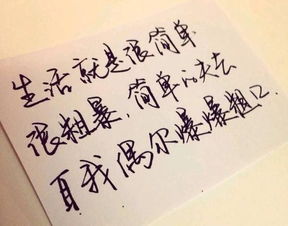 生活就是很简单
很粗暴,简单的失去
自我偶尔爆爆粗口